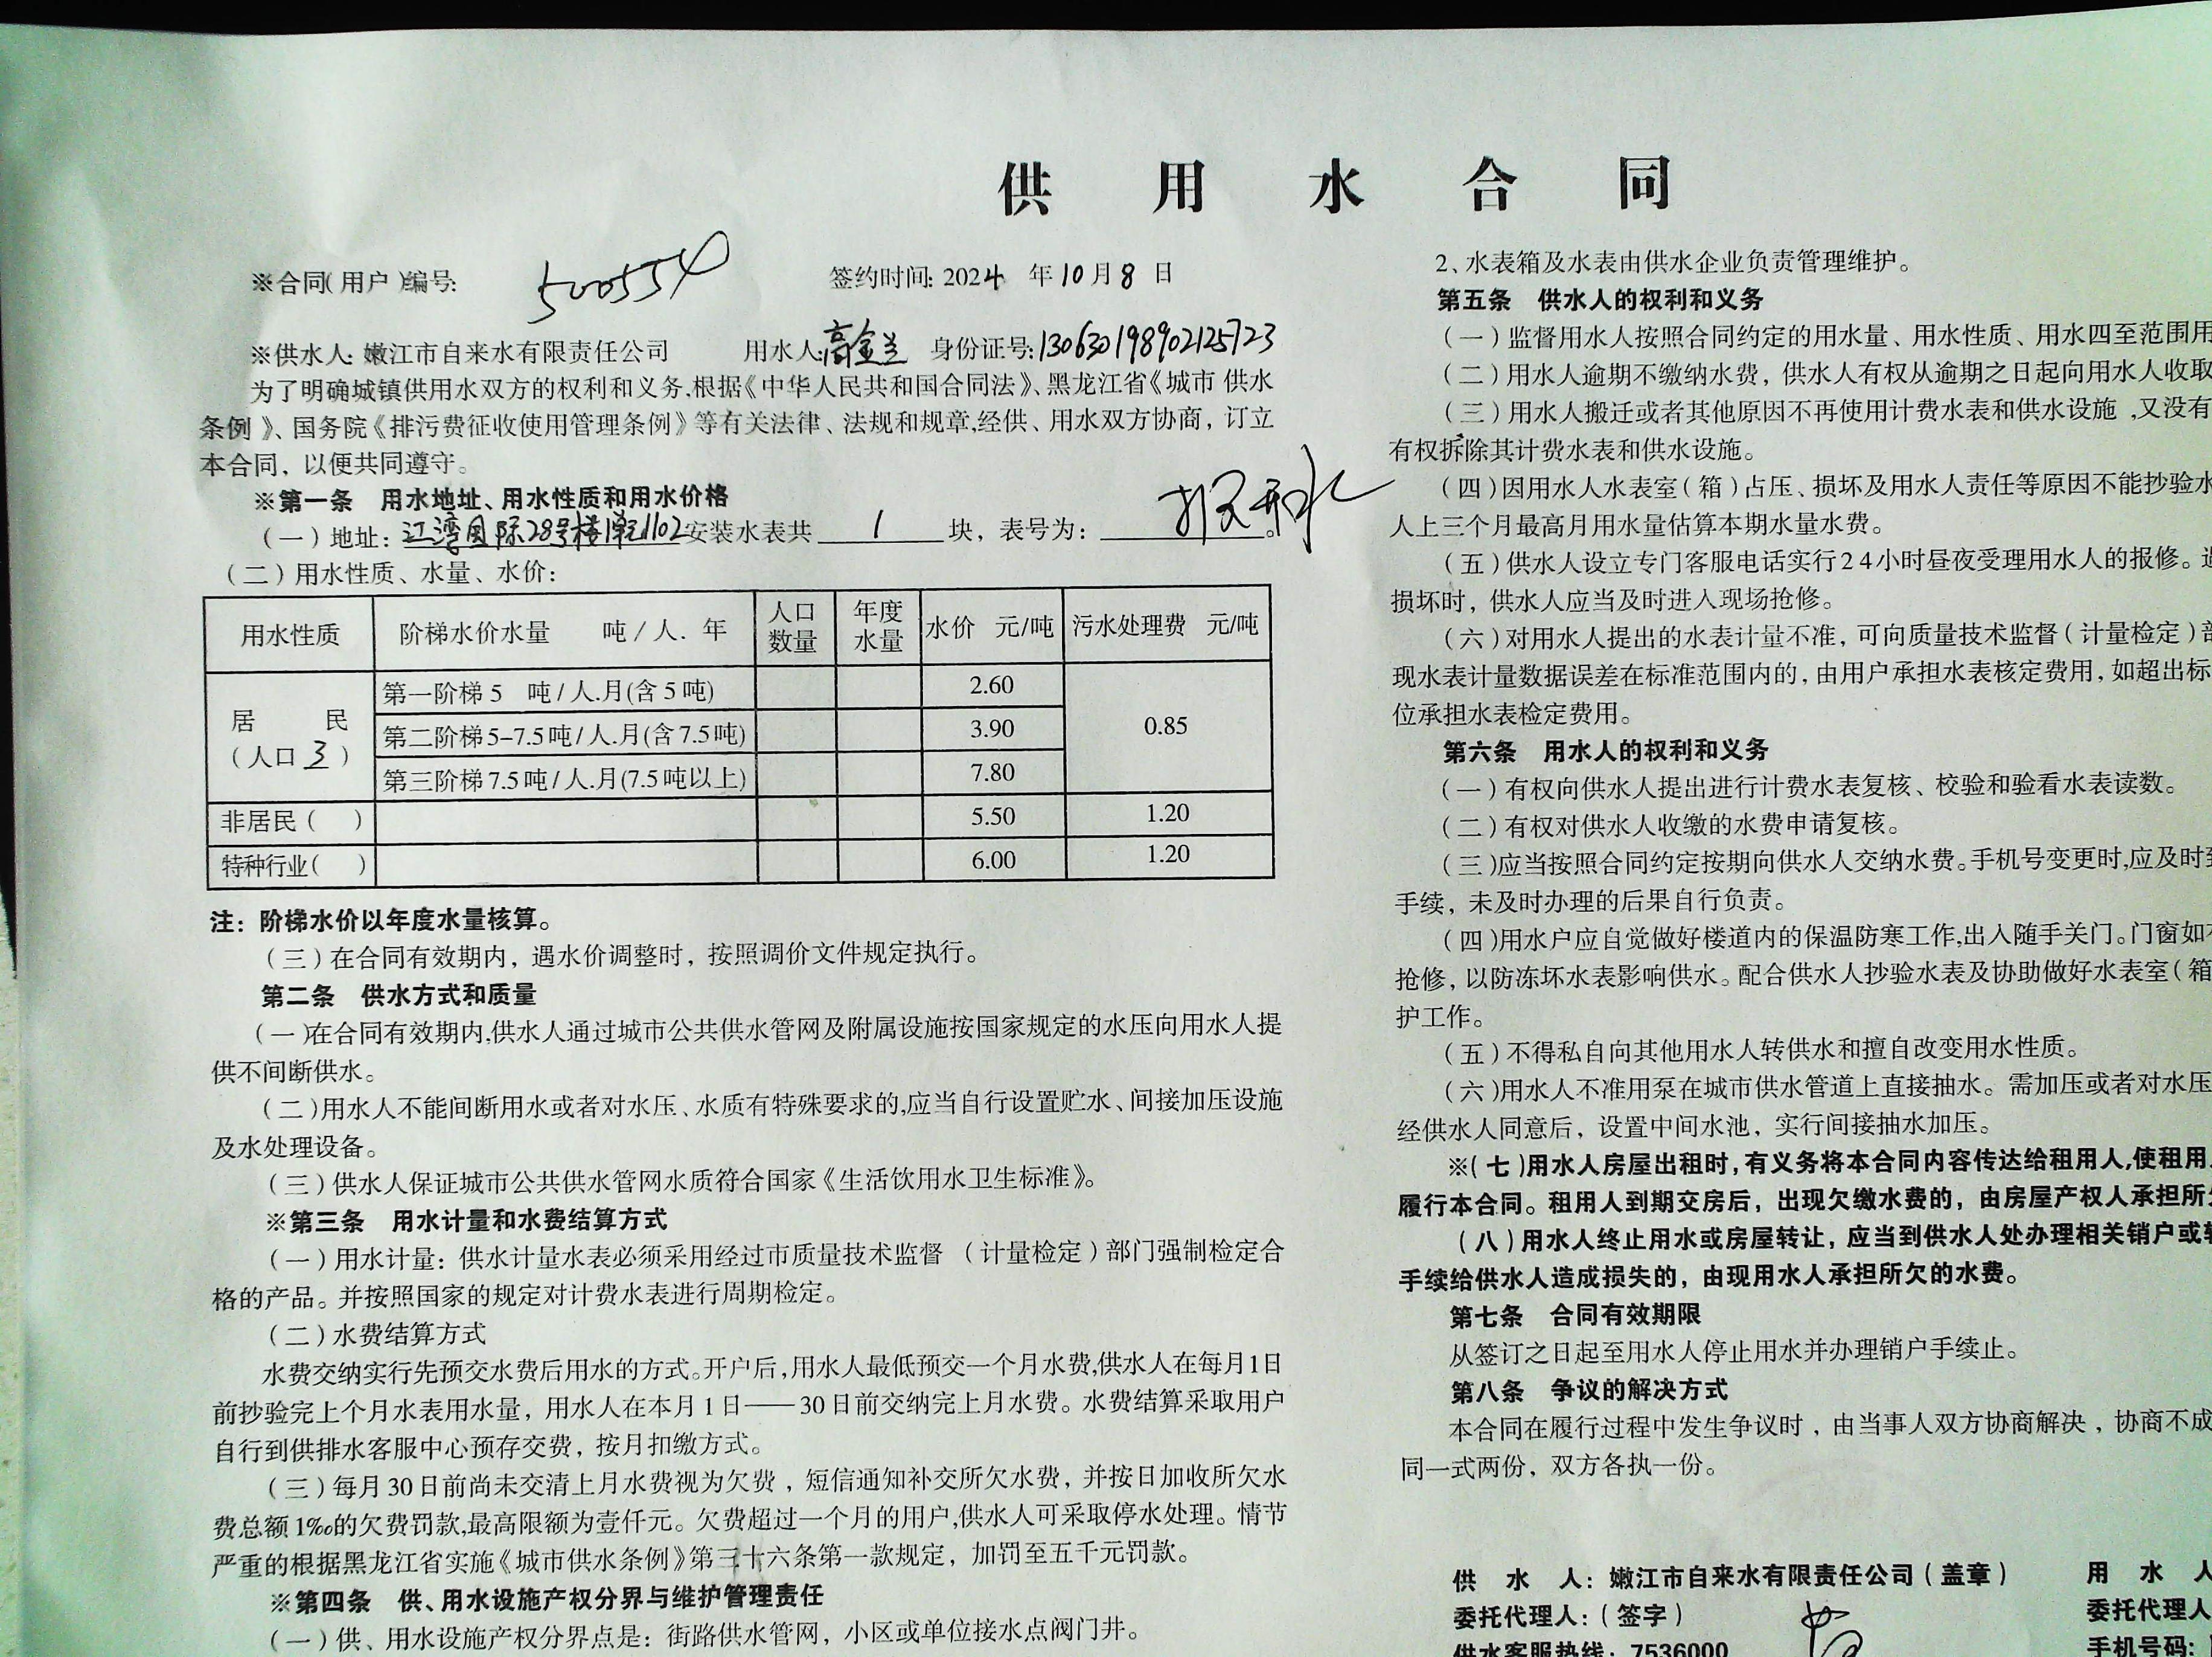 供用水合同
※合同(用户)编号: 500554
签约时间: 2024 年 10 月 8 日
※供水人: 嫩江市自来水有限责任公司 用水人: 高金兰 身份证号: 130630198902125723
为了明确城镇供用水双方的权利和义务,根据《中华人民共和国合同法》、黑龙江省《城市 供水
条例》、国务院《排污费征收使用管理条例》等有关法律、法规和规章,经供、用水双方协商, 订立
本合同, 以便共同遵守。
※第一条 用水地址、用水性质和用水价格
(一)地址: 江湾国际28号楼1单元1102 安装水表共 1 块, 表号为: 。
(二)用水性质、水量、水价:
用水性质 阶梯水价水量 吨/人.年 人口数量 年度水量 水价 元/吨 污水处理费 元/吨
居民(人口 3 ) 第一阶梯5 吨/人.月(含5吨) 2.60 0.85
第二阶梯5-7.5吨/人.月(含7.5吨) 3.90
第三阶梯7.5吨/人.月(7.5吨以上) 7.80
非居民( ) 5.50 1.20
特种行业( ) 6.00 1.20
注: 阶梯水价以年度水量核算。
(三)在合同有效期内, 遇水价调整时, 按照调价文件规定执行。
第二条 供水方式和质量
(一)在合同有效期内,供水人通过城市公共供水管网及附属设施按国家规定的水压向用水人提
供不间断供水。
(二)用水人不能间断用水或者对水压、水质有特殊要求的,应当自行设置贮水、间接加压设施
及水处理设备。
(三)供水人保证城市公共供水管网水质符合国家《生活饮用水卫生标准》。
※第三条 用水计量和水费结算方式
(一)用水计量: 供水计量水表必须采用经过市质量技术监督 (计量检定)部门强制检定合
格的产品。并按照国家的规定对计费水表进行周期检定。
(二)水费结算方式
水费交纳实行先预交水费后用水的方式。开户后,用水人最低预交一个月水费,供水人在每月1日
前抄验完上个月水表用水量, 用水人在本月1日——30日前交纳完上月水费。水费结算采取用户
自行到供排水客服中心预存交费, 按月扣缴方式。
(三)每月30日前尚未交清上月水费视为欠费, 短信通知补交所欠水费, 并按日加收所欠水
费总额1‰的欠费罚款,最高限额为壹仟元。欠费超过一个月的用户,供水人可采取停水处理。情节
严重的根据黑龙江省实施《城市供水条例》第三十六条第一款规定, 加罚至五千元罚款。
※第四条 供、用水设施产权分界与维护管理责任
(一)供、用水设施产权分界点是: 街路供水管网, 小区或单位接水点阀门井。
2、水表箱及水表由供水企业负责管理维护。
第五条 供水人的权利和义务
(一)监督用水人按照合同约定的用水量、用水性质、用水四至范围用
(二)用水人逾期不缴纳水费, 供水人有权从逾期之日起向用水人收取
(三)用水人搬迁或者其他原因不再使用计费水表和供水设施,又没有
有权拆除其计费水表和供水设施。
(四)因用水人水表室(箱)占压、损坏及用水人责任等原因不能抄验水
人上三个月最高月用水量估算本期水量水费。
(五)供水人设立专门客服电话实行24小时昼夜受理用水人的报修。
损坏时, 供水人应当及时进入现场抢修。
(六)对用水人提出的水表计量不准, 可向质量技术监督(计量检定)部
现水表计量数据误差在标准范围内的, 由用户承担水表核定费用, 如超出标
位承担水表检定费用。
第六条 用水人的权利和义务
(一)有权向供水人提出进行计费水表复核、校验和验看水表读数。
(二)有权对供水人收缴的水费申请复核。
(三)应当按照合同约定按期向供水人交纳水费。手机号变更时,应及时到
手续, 未及时办理的后果自行负责。
(四)用水户应自觉做好楼道内的保温防寒工作,出入随手关门。门窗如有
抢修, 以防冻坏水表影响供水。配合供水人抄验水表及协助做好水表室(箱
护工作。
(五)不得私自向其他用水人转供水和擅自改变用水性质。
(六)用水人不准用泵在城市供水管道上直接抽水。需加压或者对水压
经供水人同意后, 设置中间水池, 实行间接抽水加压。
※(七)用水人房屋出租时, 有义务将本合同内容传达给租用人,使租用人
履行本合同。租用人到期交房后, 出现欠缴水费的, 由房屋产权人承担所
(八)用水人终止用水或房屋转让, 应当到供水人处办理相关销户或
手续给供水人造成损失的, 由现用水人承担所欠的水费。
第七条 合同有效期限
从签订之日起至用水人停止用水并办理销户手续止。
第八条 争议的解决方式
本合同在履行过程中发生争议时, 由当事人双方协商解决, 协商不成
同一式两份, 双方各执一份。
供 水 人: 嫩江市自来水有限责任公司(盖章) 用 水 人
委托代理人:(签字) 委托代理人
供水客服热线: 7536000 手机号码: